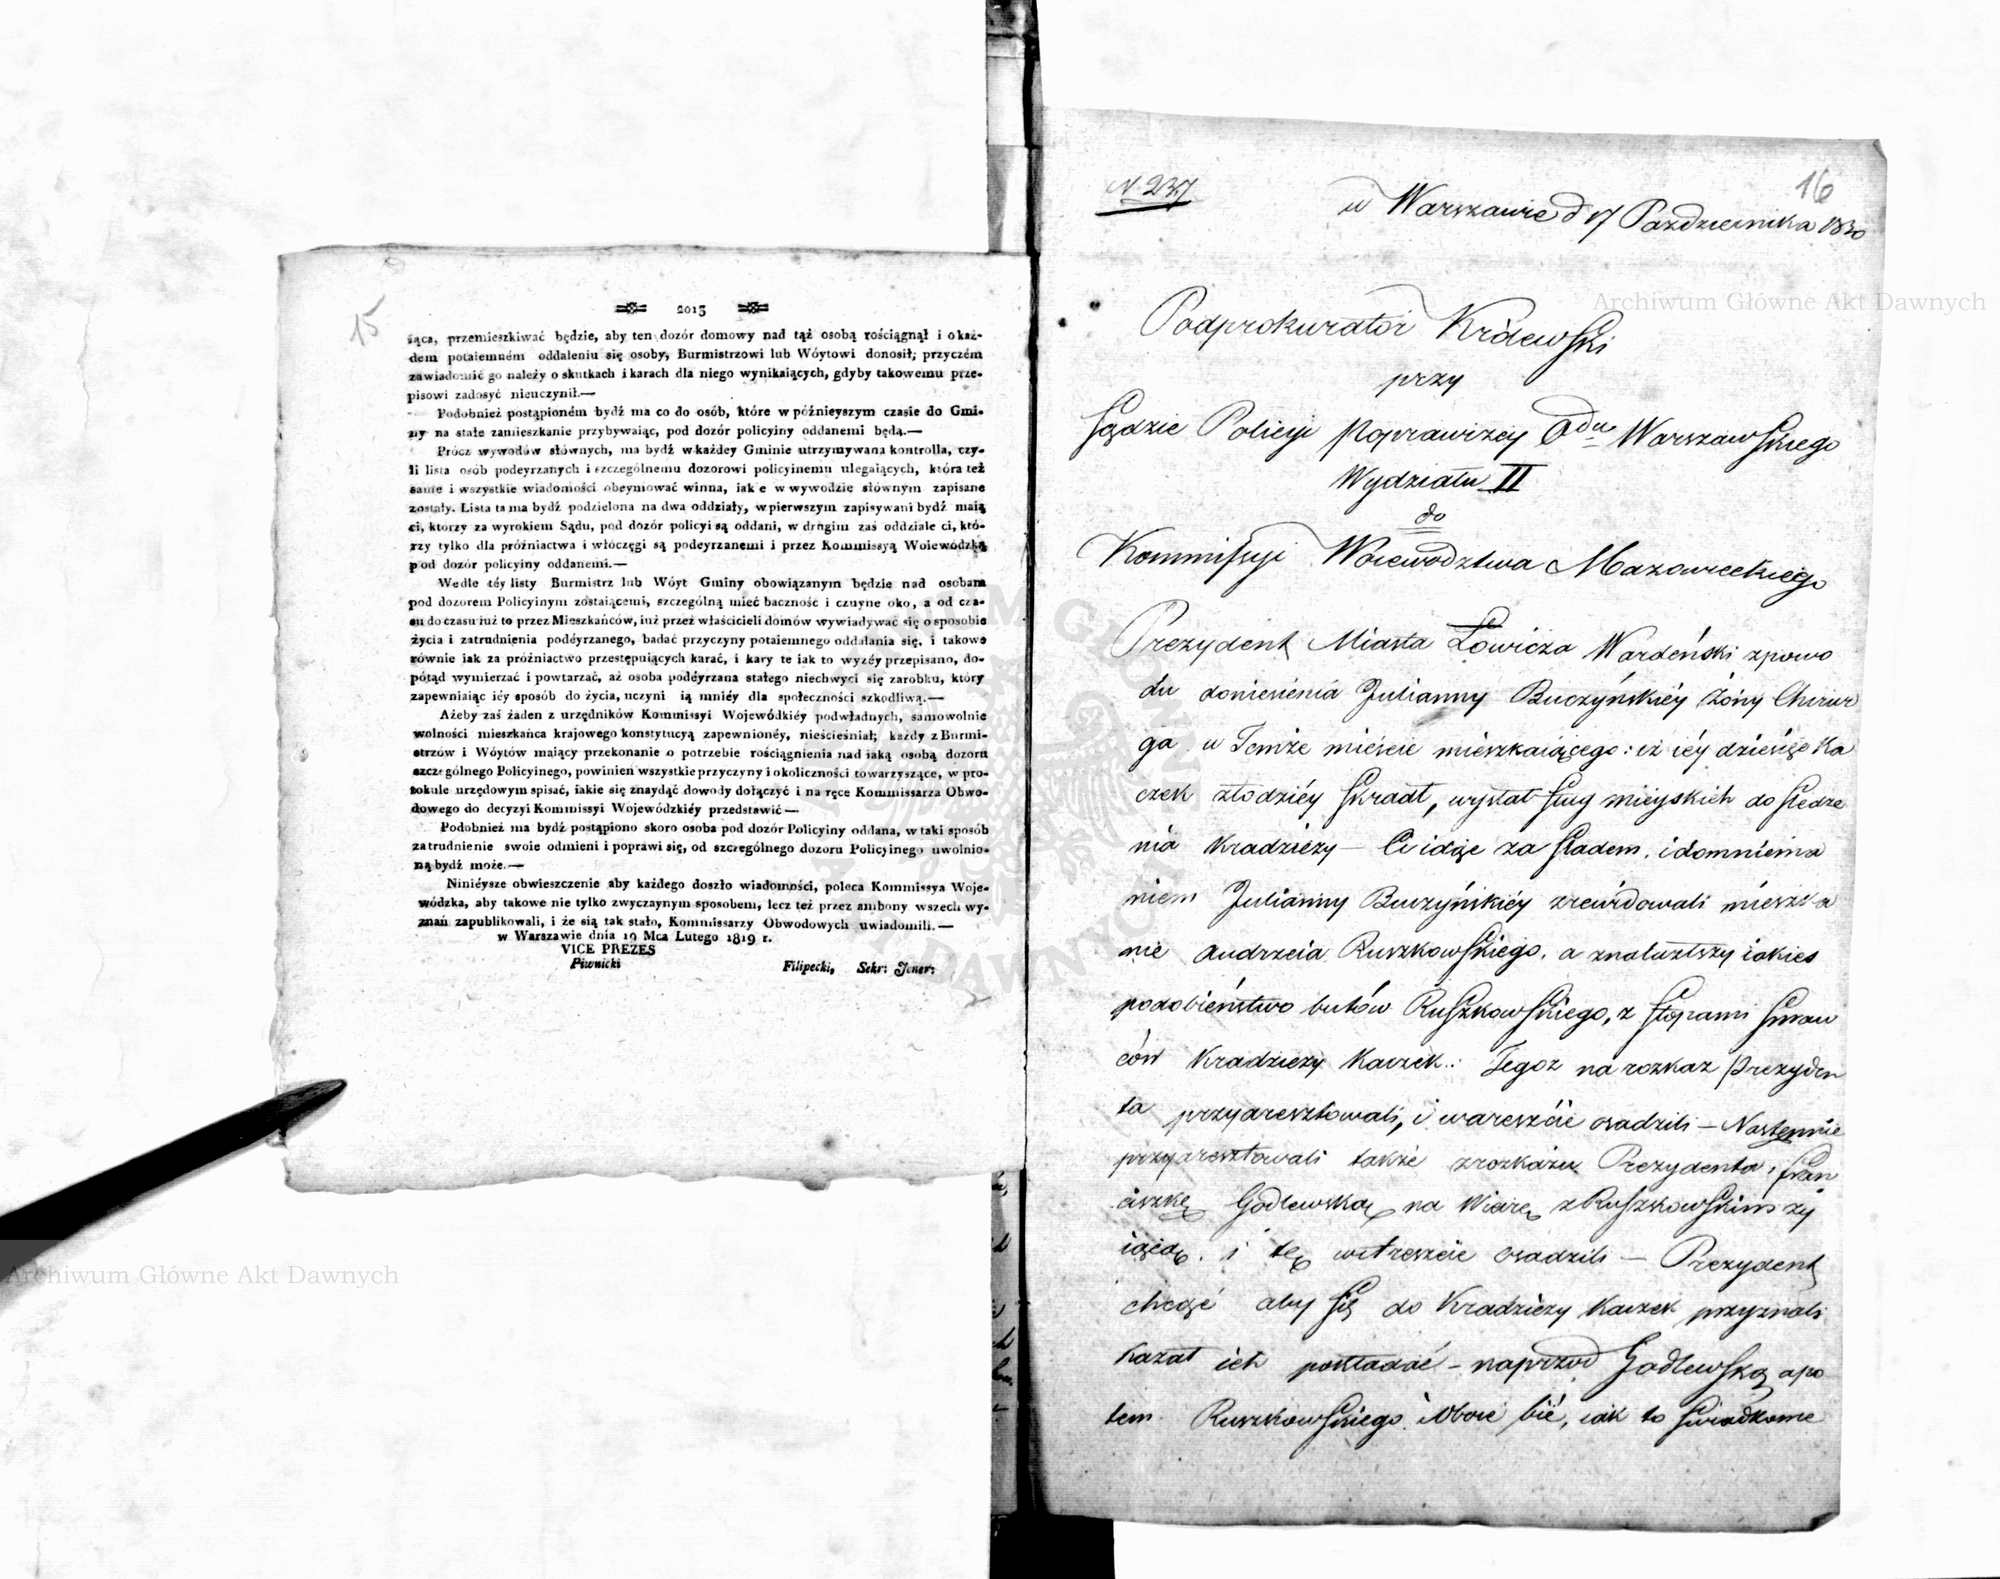 15
2015
żąca, przemieszkiwać będzie, aby ten dozór domowy nad tąż osobą rościągnął i o każ-
dem potaiemném oddaleniu się osoby, Burmistrzowi lub Wóytowi donosił; przyczém
zawiadomić go należy o skutkach i karach dla niego wynikaiących, gdyby takowemu prze-
pisowi zadosyć nieuczynił.—
Podobnież postąpioném bydź ma co do osób, które w późnieyszym czasie do Gmi-
ny na stałe zamieszkanie przybywaiąc, pod dozór policyiny oddanemi będą.—
Prócz wywodów słównych, ma bydź w każdey Gminie utrzymywana kontrolla, czy-
li lista osób podeyrzanych i szczególnemu dozorowi policyinemu ulegaiących, która też
same i wszystkie wiadomości obeymować winna, iak e w wywodzie słównym zapisane
zostały. Lista ta ma bydź podzielona na dwa oddziały, w pierwszym zapisywani bydź maią
ci, ktorzy za wyrokiem Sądu, pod dozór policyi są oddani, w drugim zaś oddziale ci, któ-
rzy tylko dla próżniactwa i włóczęgi są podeyrzanemi i przez Kommissyą Woiewódzką
pod dozór policyiny oddanemi.—
Wedle téy listy Burmistrz lub Wóyt Gminy obowiązanym będzie nad osobam
pod dozorem Policyinym zostaiącemi, szczególną mieć baczność i czuyne oko, a od cza-
su do czasu iuż to przez Mieszkańców, iuż przez właścicieli domów wywiadywać się o sposobie
życia i zatrudnienia podéyrzanego, badać przyczyny potaiemnego oddalania się, i takowe
równie iak za próżniactwo przestępuiących karać, i kary te iak to wyzéy przepisano, do-
pótąd wymierzać i powtarzać, aż osoba podéyrzana stałego niechwyci się zarobku, który
zapewniaiąc iéy sposób do życia, uczyni ią mniéy dla społeczności szkodliwą.—
Ażeby zaś żaden z urzędników Kommissyi Wojewódkiéy podwładnych, samowolnie
wolności mieszkańca krajowego konstytucyą zapewnionéy, nieścieśniał; każdy z Burmi-
strzów i Wóytów maiący przekonanie o potrzebie rościągnienia nad iaką osobą dozoru
szczególnego Policyinego, powinien wszystkie przyczyny i okoliczności towarzyszące, w pro-
tokule urzędowym spisać, iakie się znaydąć dowody dołączyć i na ręce Kommissarza Obwo-
dowego do decyzyi Kommissyi Wojewódzkiéy przedstawić—
Podobnież ma bydź postąpiono skoro osoba pod dozór Policyiny oddana, w taki sposób
zatrudnienie swoie odmieni i poprawi się, od szczególnego dozoru Policyinego uwolnio-
ną bydź może.—
Niniéysze obwieszczenie aby każdego doszło wiadomości, poleca Kommissya Woje-
wódzka, aby takowe nie tylko zwyczaynym sposobem, lecz też przez ambony wszech wy-
znań zapublikowali, i że się tak stało, Kommissarzy Obwodowych uwiadomili.—
w Warszawie dnia 19 Mca Lutego 1819 r.
VICE PREZES
Piwnicki
Filipecki, Sekr: Jener:
N 237
16
w Warszawie d 17 Pazdziernika 1830
Podprokurator Królewski
przy
Sądzie Policyi Poprawczey Odu Warszawskiego
Wydziału II
do
Kommissyi Woiewodztwa Mazowieckiego
Prezydent Miasta Łowicza Wardeński z powo
du doniesienia Julianny Buczyńskiéy Żony Chirur
ga w Temże mieście mieszkaiącego: iż iéy dziesięć ka
czek złodziéy skradł, wysłał sług mieyskich do śledze
nia kradzieży — Ci idąc za śladem, i domniema
niem Julianny Buczyńskiéy zrewidowali mieszka
nie Andrzeia Ruszkowskiego, a znalazłszy iakies
podobieństwo butów Ruszkowskiego, z stopami spraw
ców kradzieży kaczek: Tegoz na rozkaz Prezyden
ta przyaresztowali, i w areszcie osadzili — Nastęnie
przyaresztowali także z rozkazu Prezydenta, Fran
ciszkę Godlewską na wiarę z Ruszkowskim ży
iącą, i tę w areszcie osadzili — Prezydent
chcąc aby się do kradzieży kaczek przyznali
kazał ich pokładać — naprzod Godlewską a po
tem Ruszkowskiego i oboie bić, iak to świadkowie
Archiwum Główne Akt Dawnych
Archiwum Główne Akt Dawnych